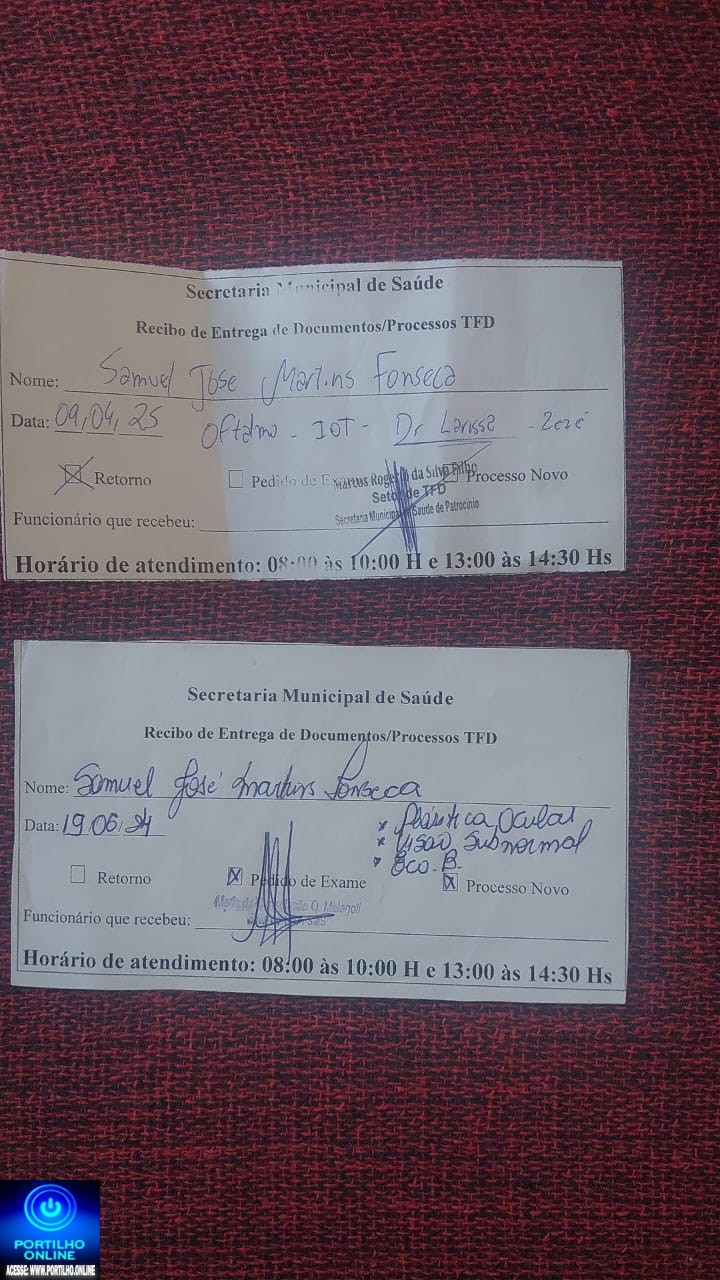 Secretaria Municipal de Saúde
Recibo de Entrega de Documentos/Processos TFD
Nome: Samuel Jose Martins Fonseca
Data: 09/04/25 Oftalmo - IOT - Dr Larissa - Zezé
Retorno Pedido de Processo Novo
Marcus Rogerio da Silva Filho
Setor de TFD
Secretaria Municipal de Saúde de Patrocínio
Funcionário que recebeu:
Horário de atendimento: 08:00 às 10:00 H e 13:00 às 14:30 Hs
Secretaria Municipal de Saúde
Recibo de Entrega de Documentos/Processos TFD
Nome: Samuel José Martins Fonseca
Data: 19/06/24 x Plástica Ocular
x Visão Subnormal
x Eco. B.
Retorno X Pedido de Exame X Processo Novo
Maria O.
Funcionário que recebeu:
Horário de atendimento: 08:00 às 10:00 H e 13:00 às 14:30 Hs
PORTILHO
ONLINE
ACESSE: WWW.PORTILHO.ONLINE